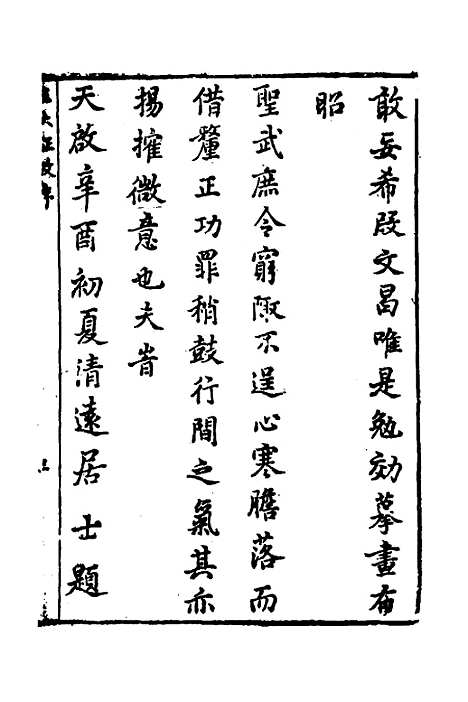 敢妄希段文昌唯是勉効摹畫布
昭
聖武庶令窮陬不逞心寒膽落而
借釐正功罪稍鼓行間之氣其亦
揚搉微意也夫旹
天啟辛酉初夏清遠居士題